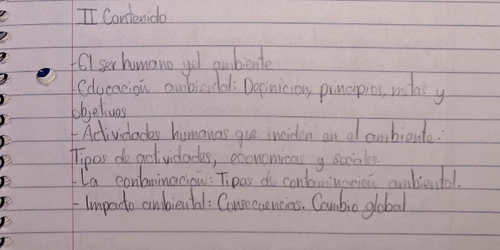 II Contenido
- El ser humano y el ambiente
- Educación ambiental: Definición, principios, metas y
objetivos
- Actividades humanas que inciden en el ambiente:
Tipos de actividades, económicas y sociales
- La contaminación: Tipos de contaminación ambiental.
- Impacto ambiental: Consecuencias. Cambio global